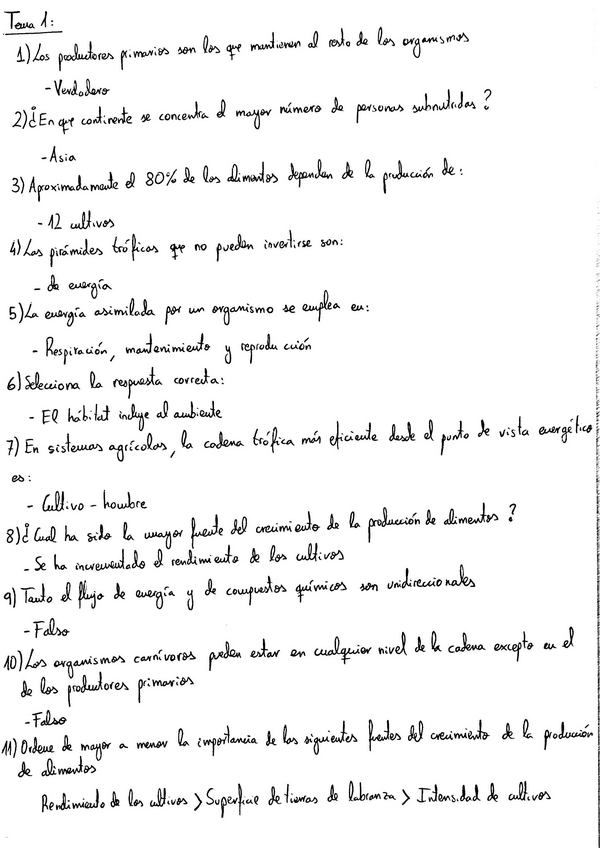 Tema 1:
1) Los productores primarios son los que mantienen al resto de los organismos
- Verdadero
2) ¿En que continente se concentra el mayor número de personas subnutridas?
- Asia
3) Aproximadamente el 80% de los alimentos dependen de la producción de:
- 12 cultivos
4) Las pirámides tróficas que no pueden invertirse son:
- de energía
5) La energía asimilada por un organismo se emplea en:
- Respiración, mantenimiento y reproducción
6) Selecciona la respuesta correcta:
- El hábitat incluye al ambiente
7) En sistemas agrícolas, la cadena trófica más eficiente desde el punto de vista energético
es:
- Cultivo - hombre
8) ¿Cual ha sido la mayor fuente del crecimiento de la producción de alimentos?
- Se ha incrementado el rendimiento de los cultivos
9) Tanto el flujo de energía y de compuestos químicos son unidireccionales
- Falso
10) Los organismos carnívoros pueden estar en cualquier nivel de la cadena excepto en el
de los productores primarios
- Falso
11) Ordene de mayor a menor la importancia de las siguientes fuentes del crecimiento de la producción
de alimentos
Rendimiento de los cultivos > Superficie de tierras de labranza > Intensidad de cultivos